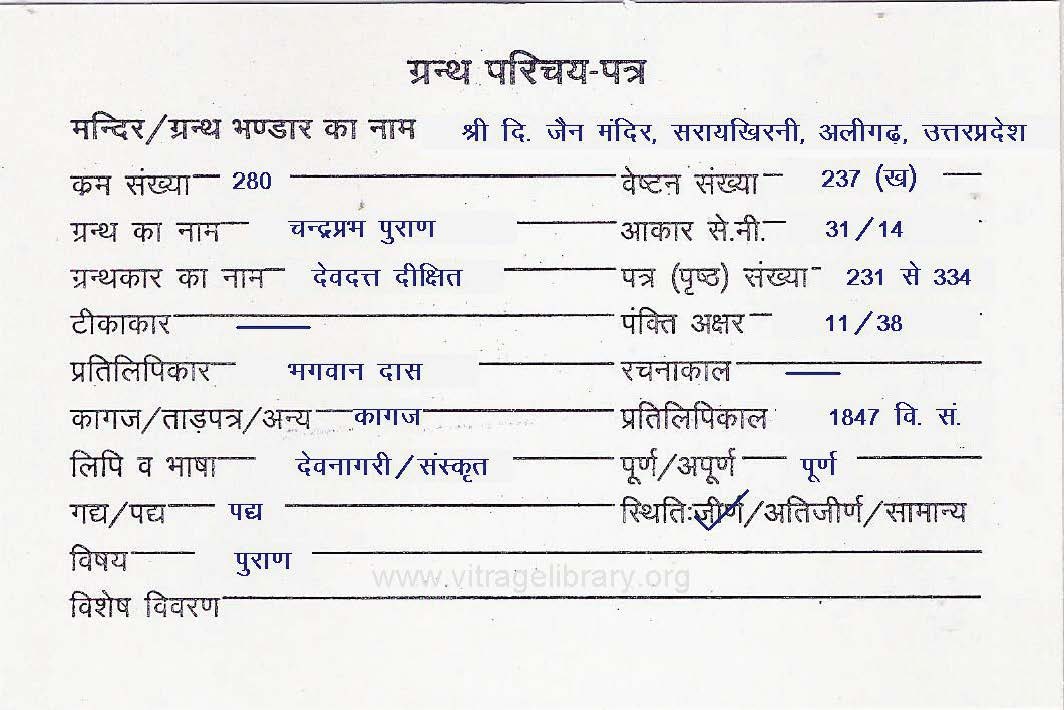 ग्रन्थ परिचय-पत्र
मन्दिर/ग्रन्थ भण्डार का नाम श्री दि. जैन मंदिर, सरायखिरनी, अलीगढ़, उत्तरप्रदेश
क्रम संख्या 280 वेष्टन संख्या 237 (ख)
ग्रन्थ का नाम चन्द्रप्रभ पुराण आकार से.मी. 31/14
ग्रन्थकार का नाम देवदत्त दीक्षित पत्र (पृष्ठ) संख्या 231 से 334
टीकाकार — पंक्ति अक्षर 11/38
प्रतिलिपिकार भगवान दास रचनाकाल —
कागज/ताड़पत्र/अन्य कागज प्रतिलिपिकाल 1847 वि. सं.
लिपि व भाषा देवनागरी/संस्कृत पूर्ण/अपूर्ण पूर्ण
गद्य/पद्य पद्य स्थितिः जीर्ण/अतिजीर्ण/सामान्य
विषय पुराण
www.vitragelibrary.org
विशेष विवरण